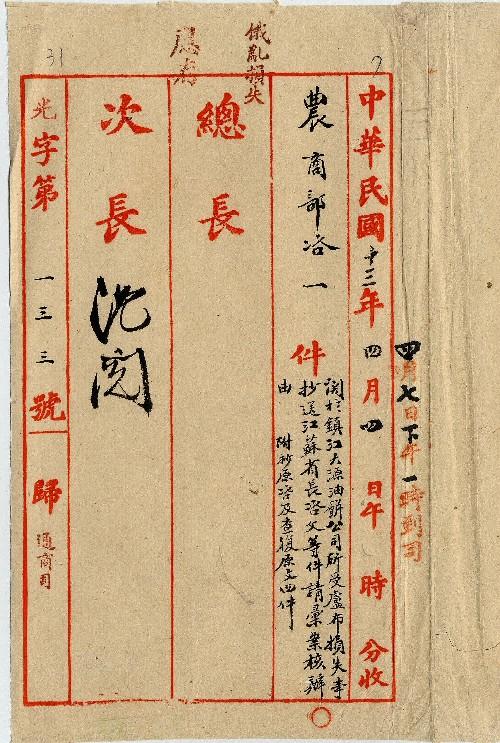 四月七日下午一時到司
中華民國十三年四月四日午時分收
農商部咨一件
關於鎮江大源油餅公司所受盧布損失事
抄送江蘇省長咨文等件請彙案核辦
由
附抄原咨及查復原文四件
俄亂損失
總長
次長
沈閱
光字第一三三號
歸通商司
31